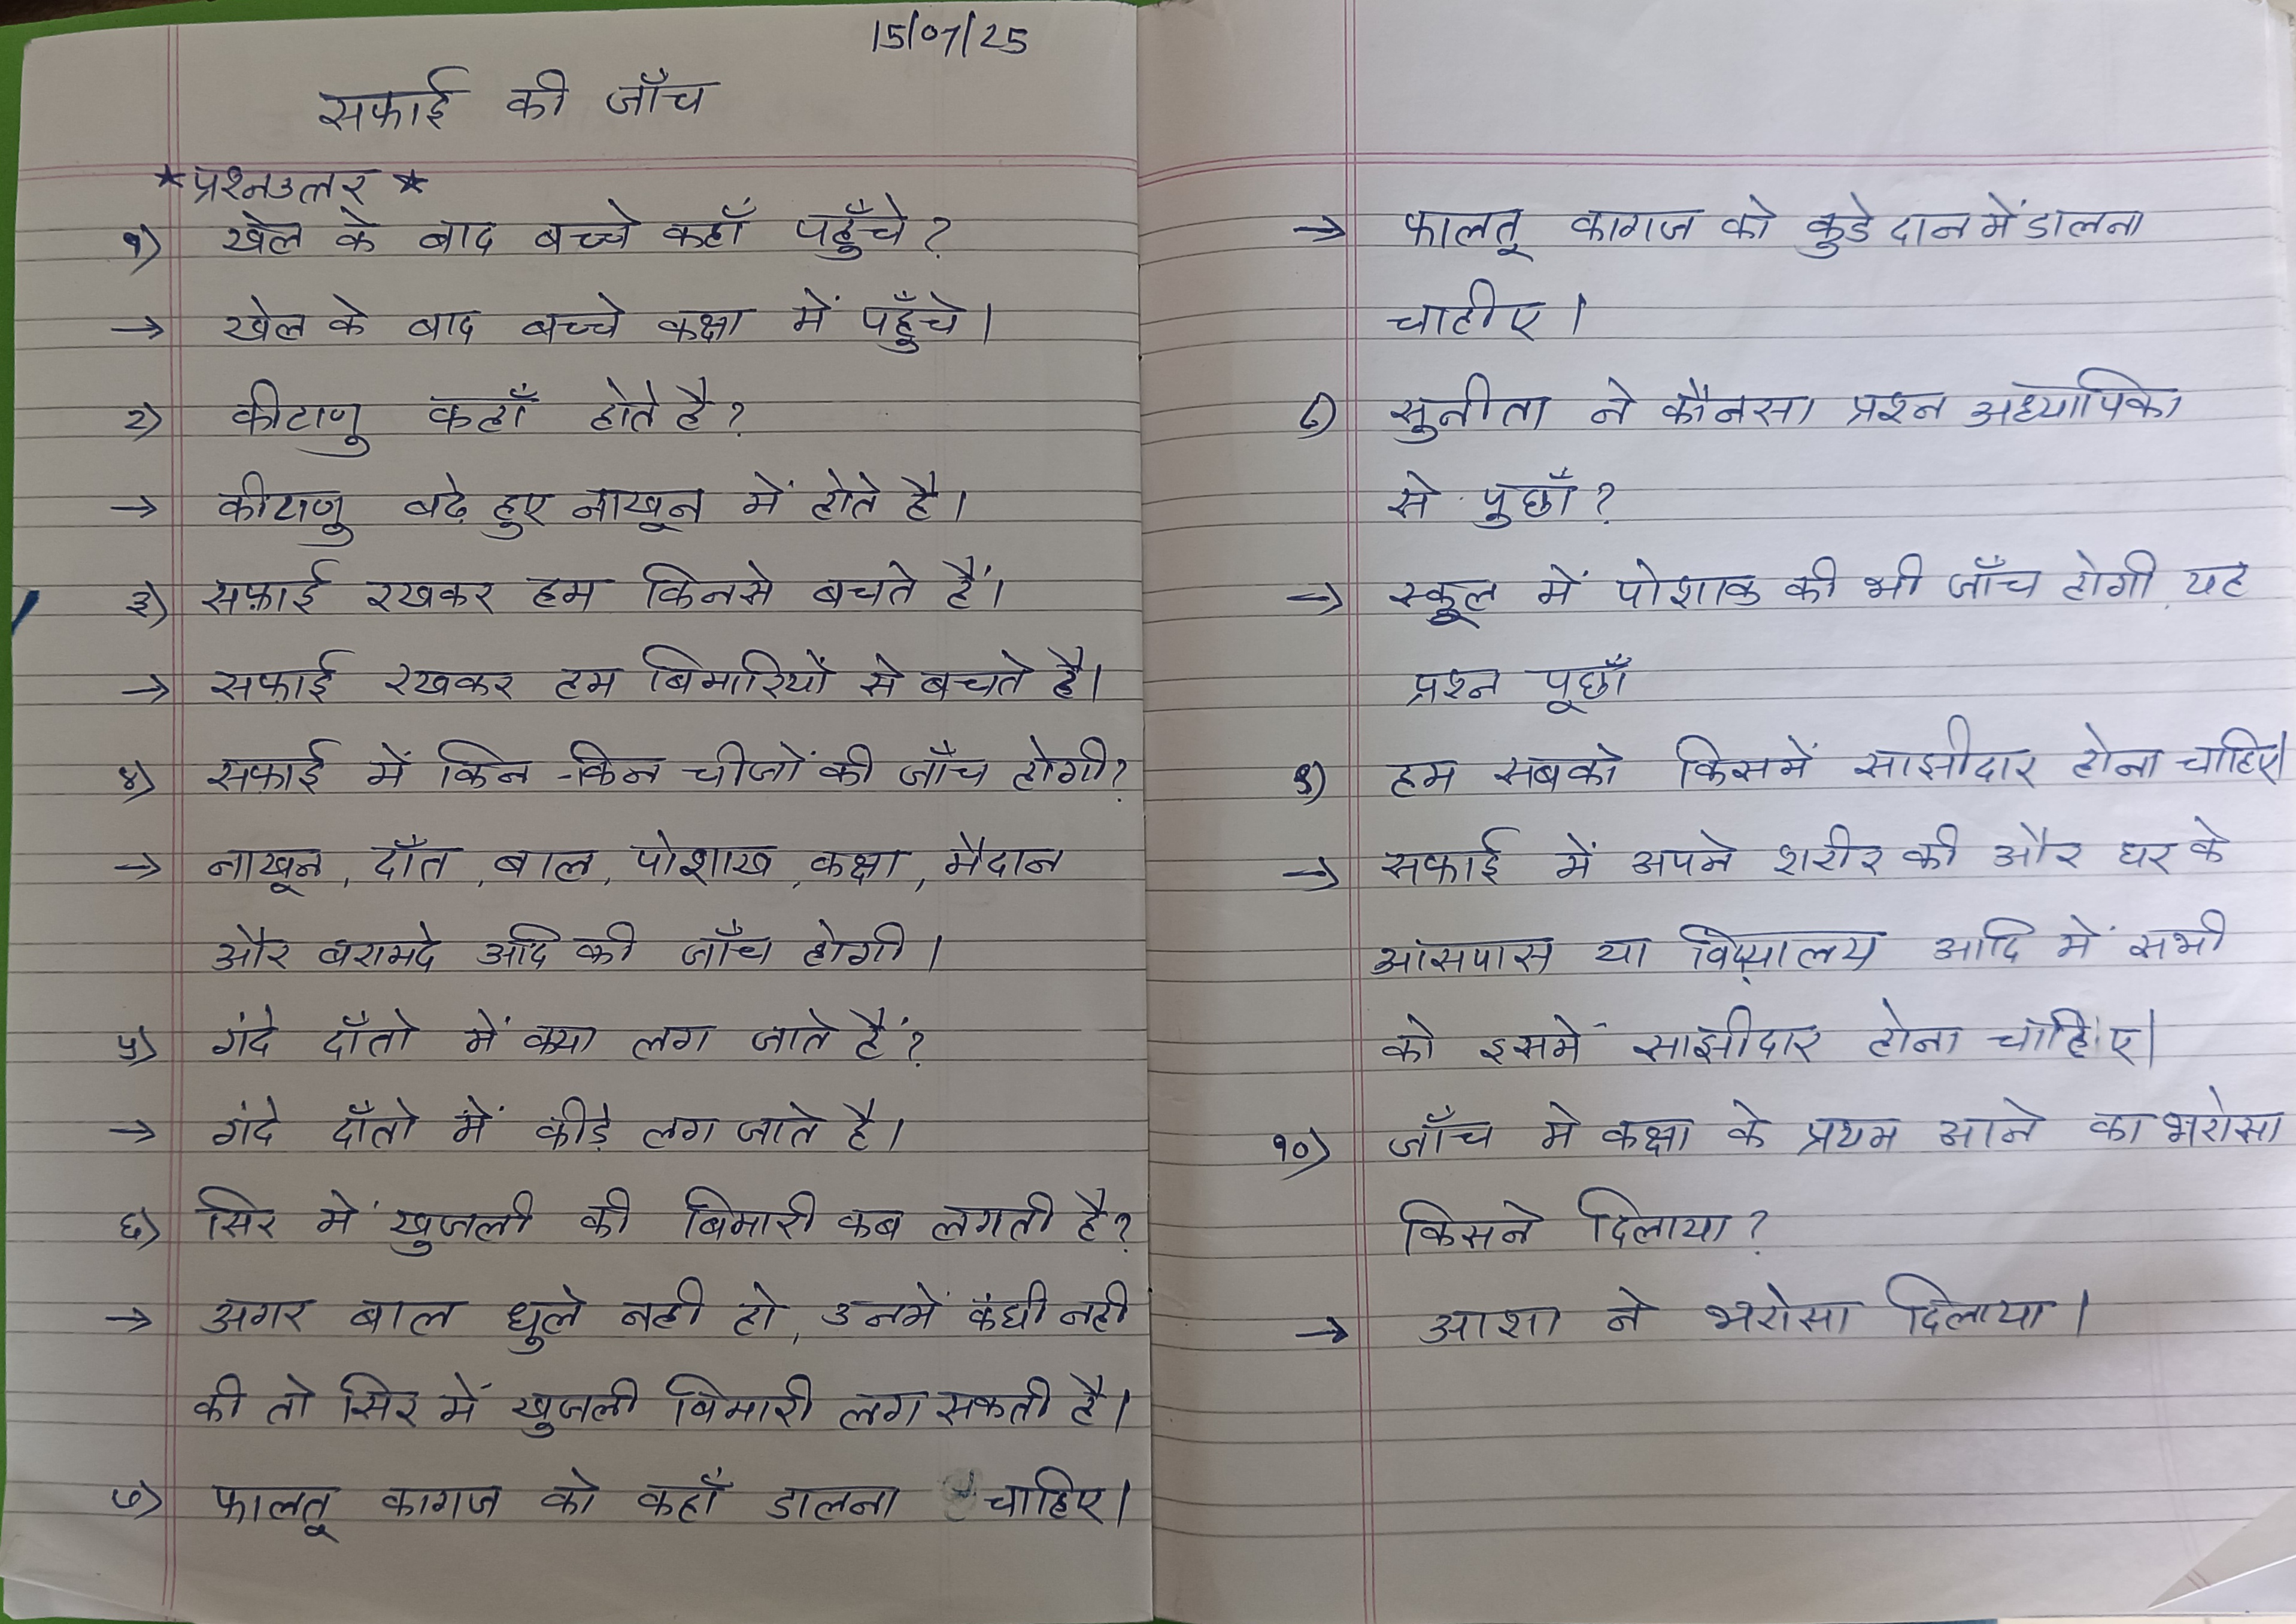 15/07/25
सफाई की जाँच
*प्रश्नउत्तर *
१) खेल के बाद बच्चे कहाँ पहुँचे?
→ खेल के बाद बच्चे कक्षा में पहुँचे।
२) कीटाणु कहाँ होते है?
→ कीटाणु बढे़ हुए नाखून में होते है।
३) सफ़ाई रखकर हम किनसे बचते हैं।
→ सफ़ाई रखकर हम बिमारियों से बचते है।
४) सफ़ाई में किन-किन चीजों की जाँच होगी?
→ नाखून, दाँत, बाल, पोशाख, कक्षा, मैदान
और बरामदे आदि की जाँच होगी।
५) गंदे दाँतो में क्या लग जाते हैं?
→ गंदे दाँतो में कीड़े लग जाते है।
६) सिर में खुजली की बिमारी कब लगती है?
→ अगर बाल धुले नही हो, उनमें कंघी नही
की तो सिर में खुजली बिमारी लग सकती है।
७) फालतू कागज को कहाँ डालना चाहिए।
→ फालतू कागज को कुडे दान में डालना
चाहीए।
८) सुनीता ने कौनसा प्रश्न अध्यापिका
से पुछाँ?
→ स्कूल में पोशाक की भी जाँच होगी यह
प्रश्न पूछाँ
९) हम सबको किसमें साझीदार होना चाहिए।
→ सफाई में अपने शरीर की और घर के
आसपास या विद्यालय आदि में सभी
को इसमें साझीदार होना चाहिए।
१०) जाँच मे कक्षा के प्रथम आने का भरोसा
किसने दिलाया?
→ आशा ने भरोसा दिलाया।